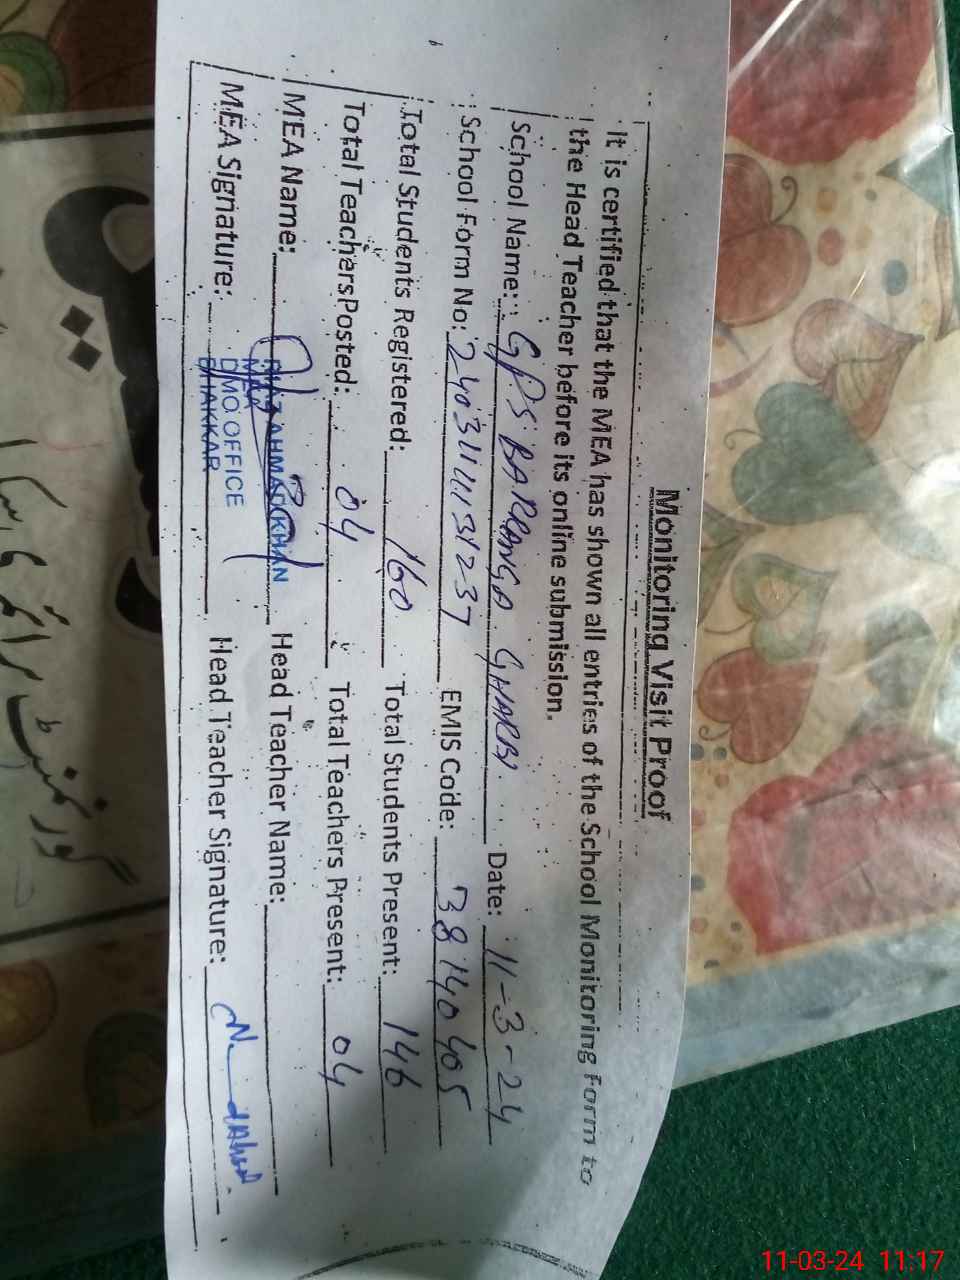 Monitoring Visit Proof
It is certified that the MEA has shown all entries of the School Monitoring Form to
the Head Teacher before its online submission.
School Name: GPS BARRANGA GHARBI Date: 11-3-24
School Form No: EMIS Code: 38140405
Total Students Registered: 160 Total Students Present: 146
Total Teachers Posted: 04 Total Teachers Present: 04
MEA Name: AHMAD KHAN Head Teacher Name:
MEA
MEA Signature: DMO.OFFICE Head Teacher Signature:
BHAKKAR
گورنمنٹ پرائمری سکول
11-03-24 11:17